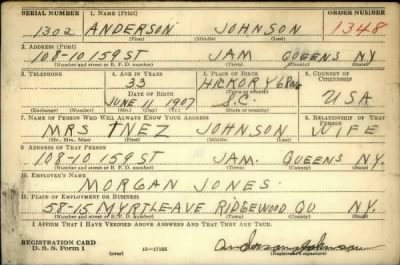 SERIAL NUMBER 1. NAME (Print) ORDER NUMBER
1302 ANDERSON JOHNSON 1348
(First) (Middle) (Last)
2. ADDRESS (Print)
108-10 159 ST JAM QUEENS NY
(Number and street or R. F. D. number) (Town) (County) (State)
3. TELEPHONE 4. AGE IN YEARS 5. PLACE OF BIRTH 6. COUNTRY OF CITIZENSHIP
33 HICKORY GROVE
DATE OF BIRTH (Town or county)
JUNE 11 1907 S.C. USA
(Exchange) (Number) (Mo.) (Day) (Yr.) (State or country)
7. NAME OF PERSON WHO WILL ALWAYS KNOW YOUR ADDRESS 8. RELATIONSHIP OF THAT PERSON
MRS INEZ JOHNSON WIFE
(Mr., Mrs., Miss) (First) (Middle) (Last)
9. ADDRESS OF THAT PERSON
108-10 159 ST JAM. QUEENS N.Y.
(Number and street or R. F. D. number) (Town) (County) (State)
10. EMPLOYER'S NAME
MORGAN JONES
11. PLACE OF EMPLOYMENT OR BUSINESS
58-15 MYRTLE AVE RIDGEWOOD QU N.Y.
(Number and street or R. F. D. number) (Town) (County) (State)
I AFFIRM THAT I HAVE VERIFIED ABOVE ANSWERS AND THAT THEY ARE TRUE.
REGISTRATION CARD
D. S. S. Form 1 (over) 16-17105 Anderson Johnson
(Registrant's signature)